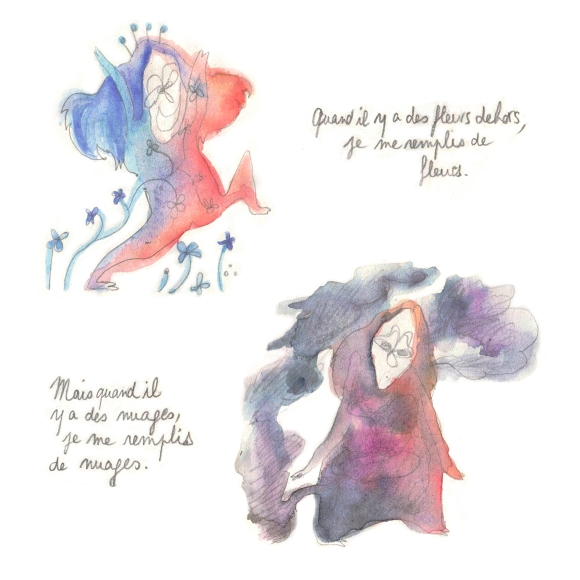 Quand il y a des fleurs dehors,
je me remplis de
fleurs.
Mais quand il
y a des nuages,
je me remplis
de nuages.